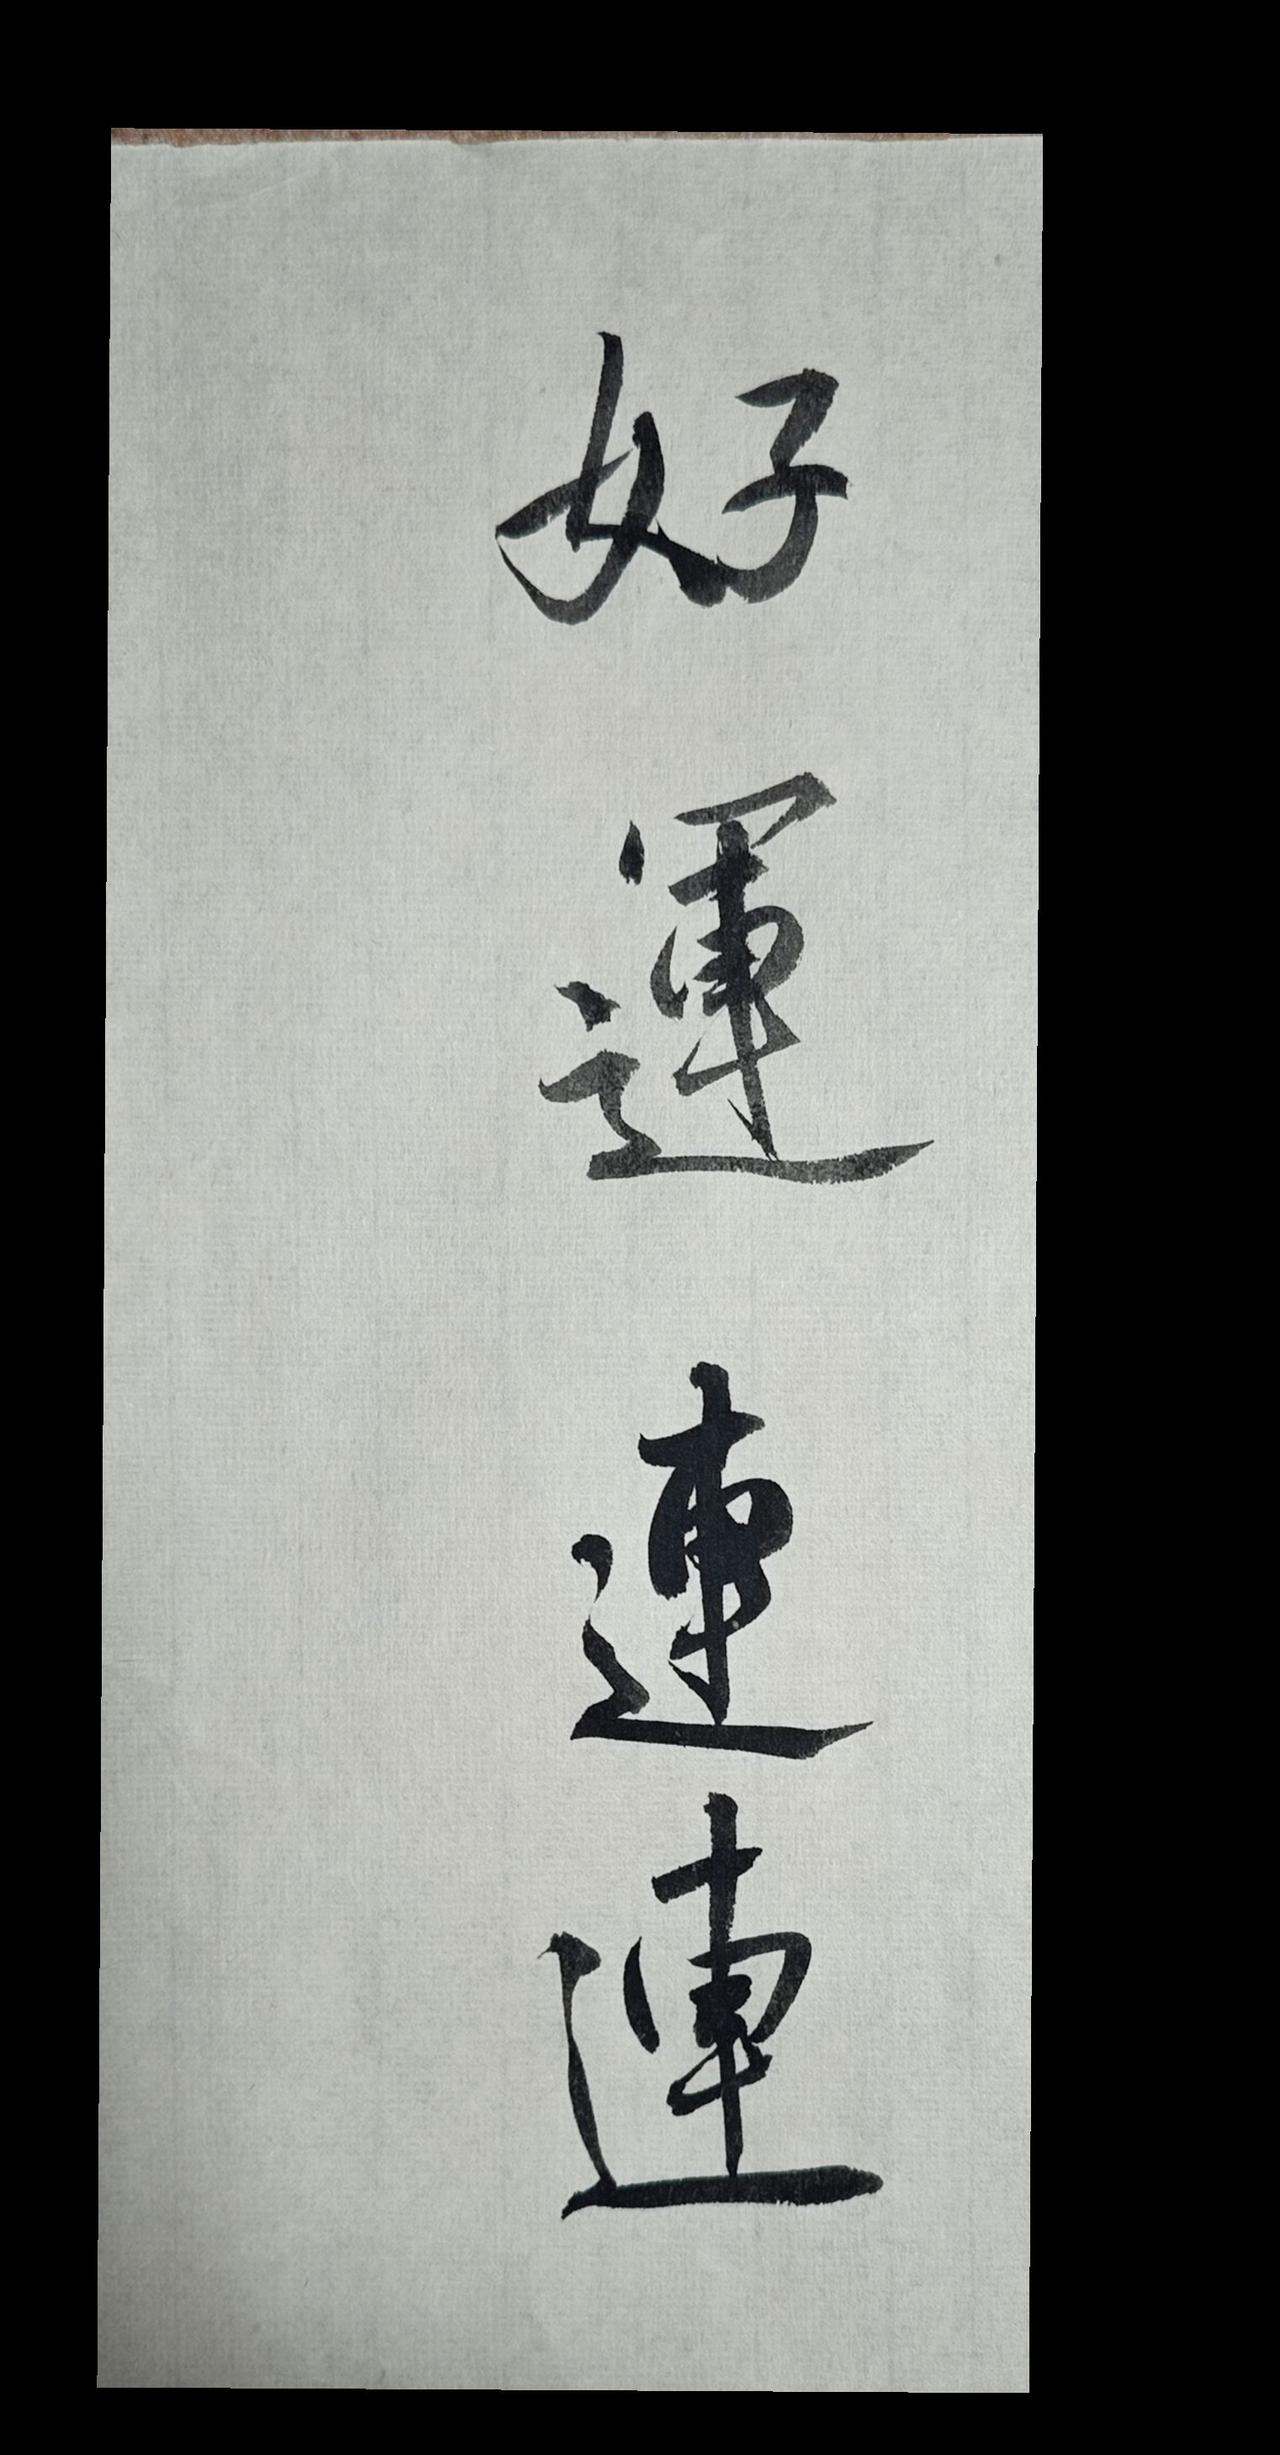 好運連連